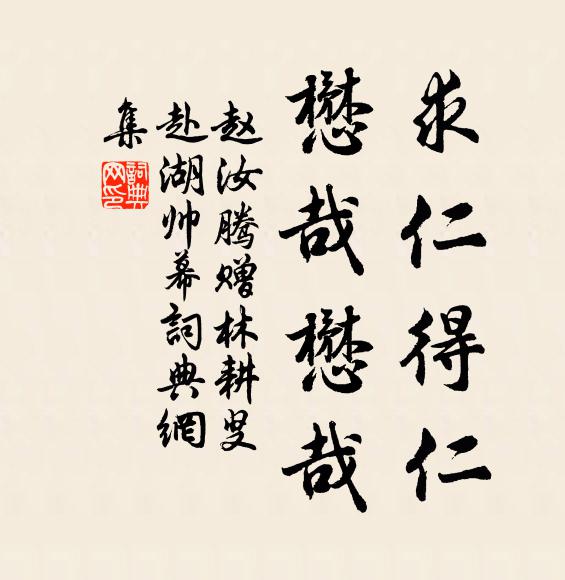 求仁得仁
懋哉懋哉
赵汝腾赠林耕叟
赴湖帅幕詞典網
集
詞典网印